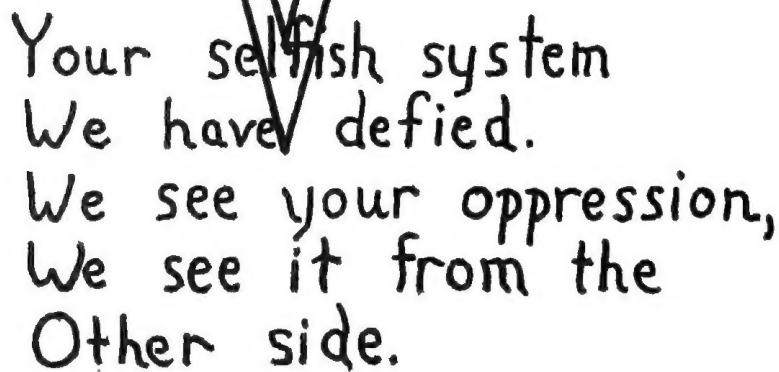 Your selfish system
We have defied.
We see your oppression,
We see it from the
Other side.